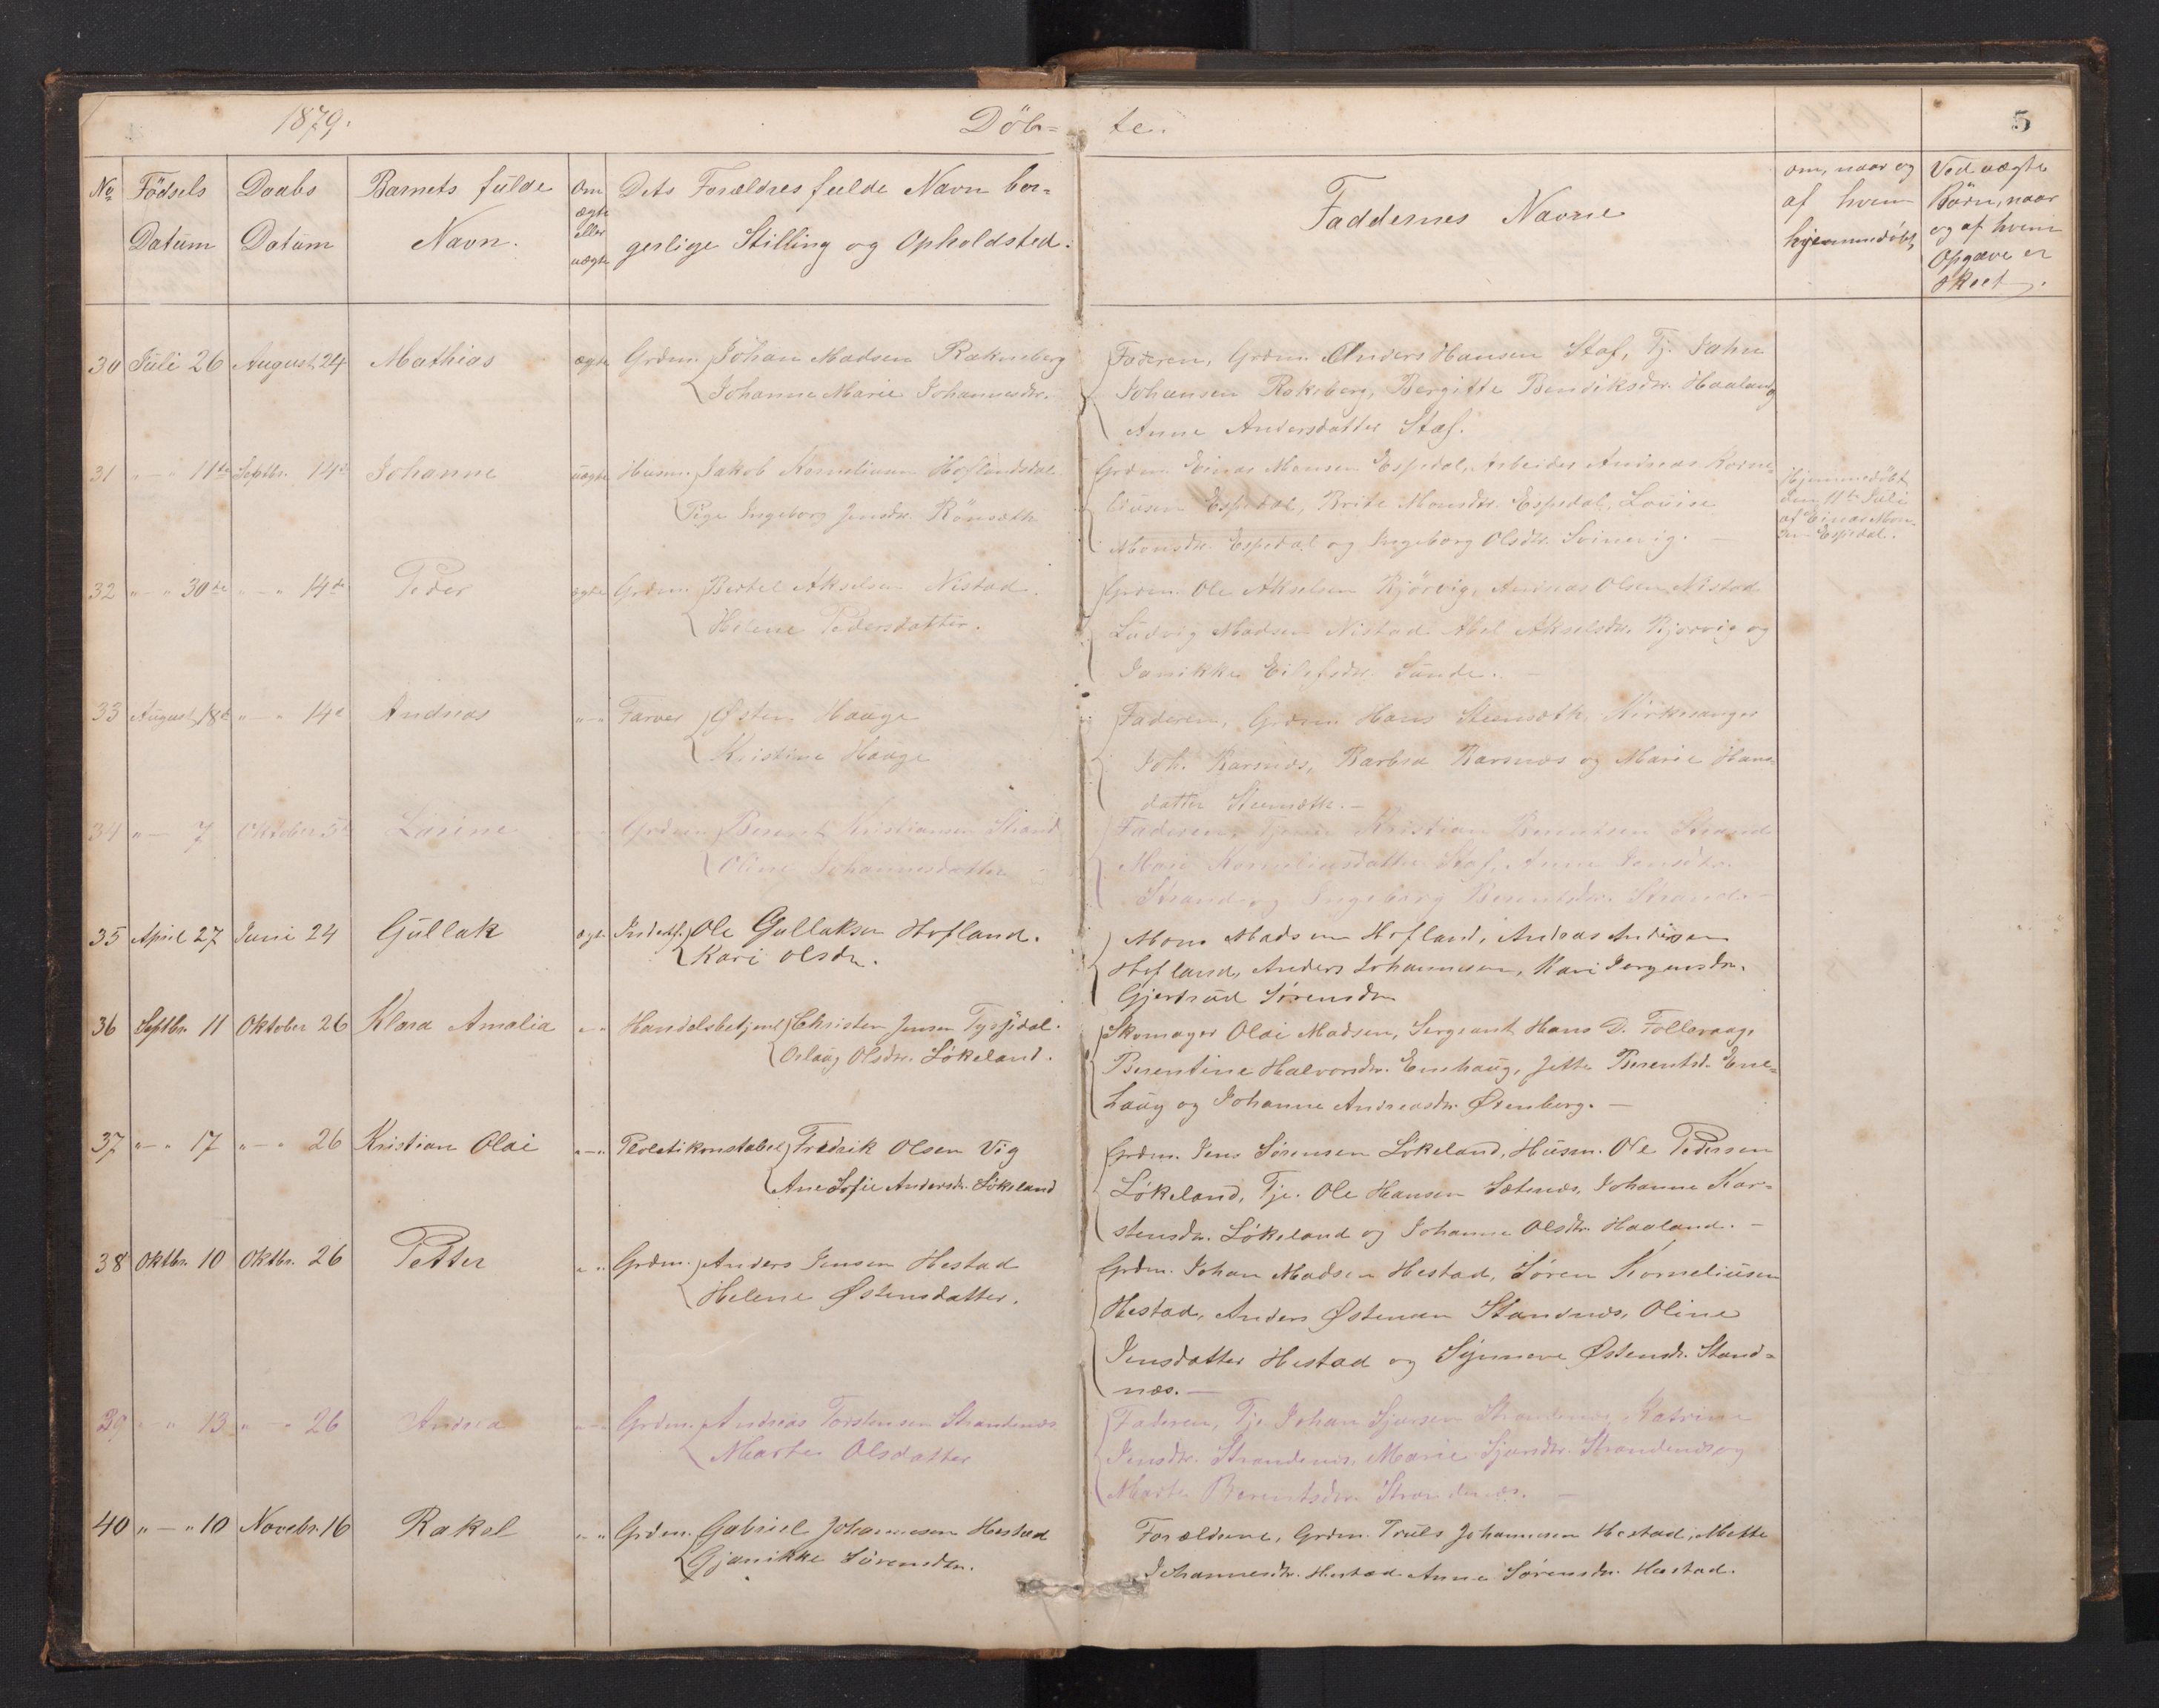 1879.
Döb=
te.
5
No Födsels Datum
Daabs Datum
Barnets fulde Navn.
Om ægte eller uægte
Dets Forældres fulde Navn bor=
gerlige Stilling og Opholdsted.
Faddernes Navne
om, naar og
af hvem
hjemmedöbt,
Ved uægte
Börn, naar
og af hvem
Opgave er
skeet.
30 Juli 26 August 24 Mathias ægte Grdm. Johan Madsen Rakneberg
Johanne Marie Johannesdr.
Faderen, Grdm. Anders Hansen Staf, Tj. John
Johansen Rakneberg, Bergitte Bendiksdr. Haaland og
Anne Andersdatter Staf.
31 " — " 11te Septbr. 14de Johanne uægte Husm. Jakob Kornelius Hoflandsdal
Pige Ingeborg Jensdr. Rönsæth
Grdm. Einar Monsen Espedal, Arbeider Andreas Korne=
liusen Espedal, Brite Monsdr. Espedal, Louise
Monsdr. Espedal og Ingeborg Olsdr. Svinevig. —
Hjemmedöbt
den 11te Juli
af Einar Mon=
sen Espedal.
32 " — " 30te " — " 14de Peder ægte Grdm. Bertel Akselsen Nistad.
Helene Pedersdatter.
Grdm. Ole Akselsen Kjörvig, Andreas Olsen Nistad
Ludvig Madsen Nistad Abel Akselsdr. Kjörvig og
Janikke Eilefsdr. Sande. —
33 August 18de " — " 14de Andreas " — " Farver Østen Haage
Kristine Haage
Faderen, Grdm. Hans Steensæth, Kirkesanger
Joh. Karsnæs, Barbra Karsnæs og Marie Hans=
datter Steensæth. —
34 " — 7 Oktober 5te Larine " — " Grdm. Berent Kristiansen Strand
Oline Johannesdatter
Faderen, Tjener Kristian Berentsen Strand
Mari Korneliusdatter Staf, Anne Jensdr.
Strand og Ingeborg Berentsdr. Strand. —
35 April 27 Juni 24 Gullak ægte Inderst. Ole Gullaksen Hofland.
Kari Olsdr.
Mons Madsen Hofland, Andreas Andersen
Hofland, Anders Johannesen, Kari Jørgensdr.
Gjertrud Sörensdr.
36 Septbr. 11 Oktober 26 Klara Amalia " — " Handelsbetjent Christen Jensen Tysjedal.
Oslaug Olsdr. Lökeland.
Skomager Olai Madsen, Sergeant Hans D. Folleraag,
Berentine Halvorsdr. Enehaug, Jette Berentsd. Ene=
haug og Johanne Andreasdr. Østenberg. —
37 " — " 17 " — " 26 Kristian Olai " — " Politikonstabel Fredrik Olsen Vig
Ane Sofie Andersdr. Lökeland
Grdm. Jens Sörensen Lökeland, Husm. Ole Pedersen
Lökeland, Tje. Ole Hansen Sætenæs, Johanne Kar=
stensdr. Lökeland og Johanne Olsdr. Haaland. —
38 Oktbr. 10 Oktbr. 26 Petter " " Grdm. Anders Jensen Hestad
Helene Østensdatter.
Grdm. Johan Madsen Hestad, Sören Korneliusen
Hestad, Anders Østensen Standnæs, Oline
Jensdatter Hestad og Synneve Østensdr. Stand=
næs. —
39 " — " 13 " — " 26 Andrea " — " Grdm. Andreas Torstensen Strandenæs
Marte Olsdatter
Faderen, Tje Johan Sjursen Strandenæs, Katrine
Jensdr. Strandenæs, Marie Sjursdr. Strandenæs og
Marte Berentsdr. Strandenæs. —
40 " — " 10 Novebr. 16 Rakel " — " Grdm. Gabriel Johannesen Hestad
Gjanikke Sörensdr.
Forældrene, Grdm. Truls Johannesen Hestad, Mette
Johannesdr. Hestad Anne Sörensdr. Hestad.